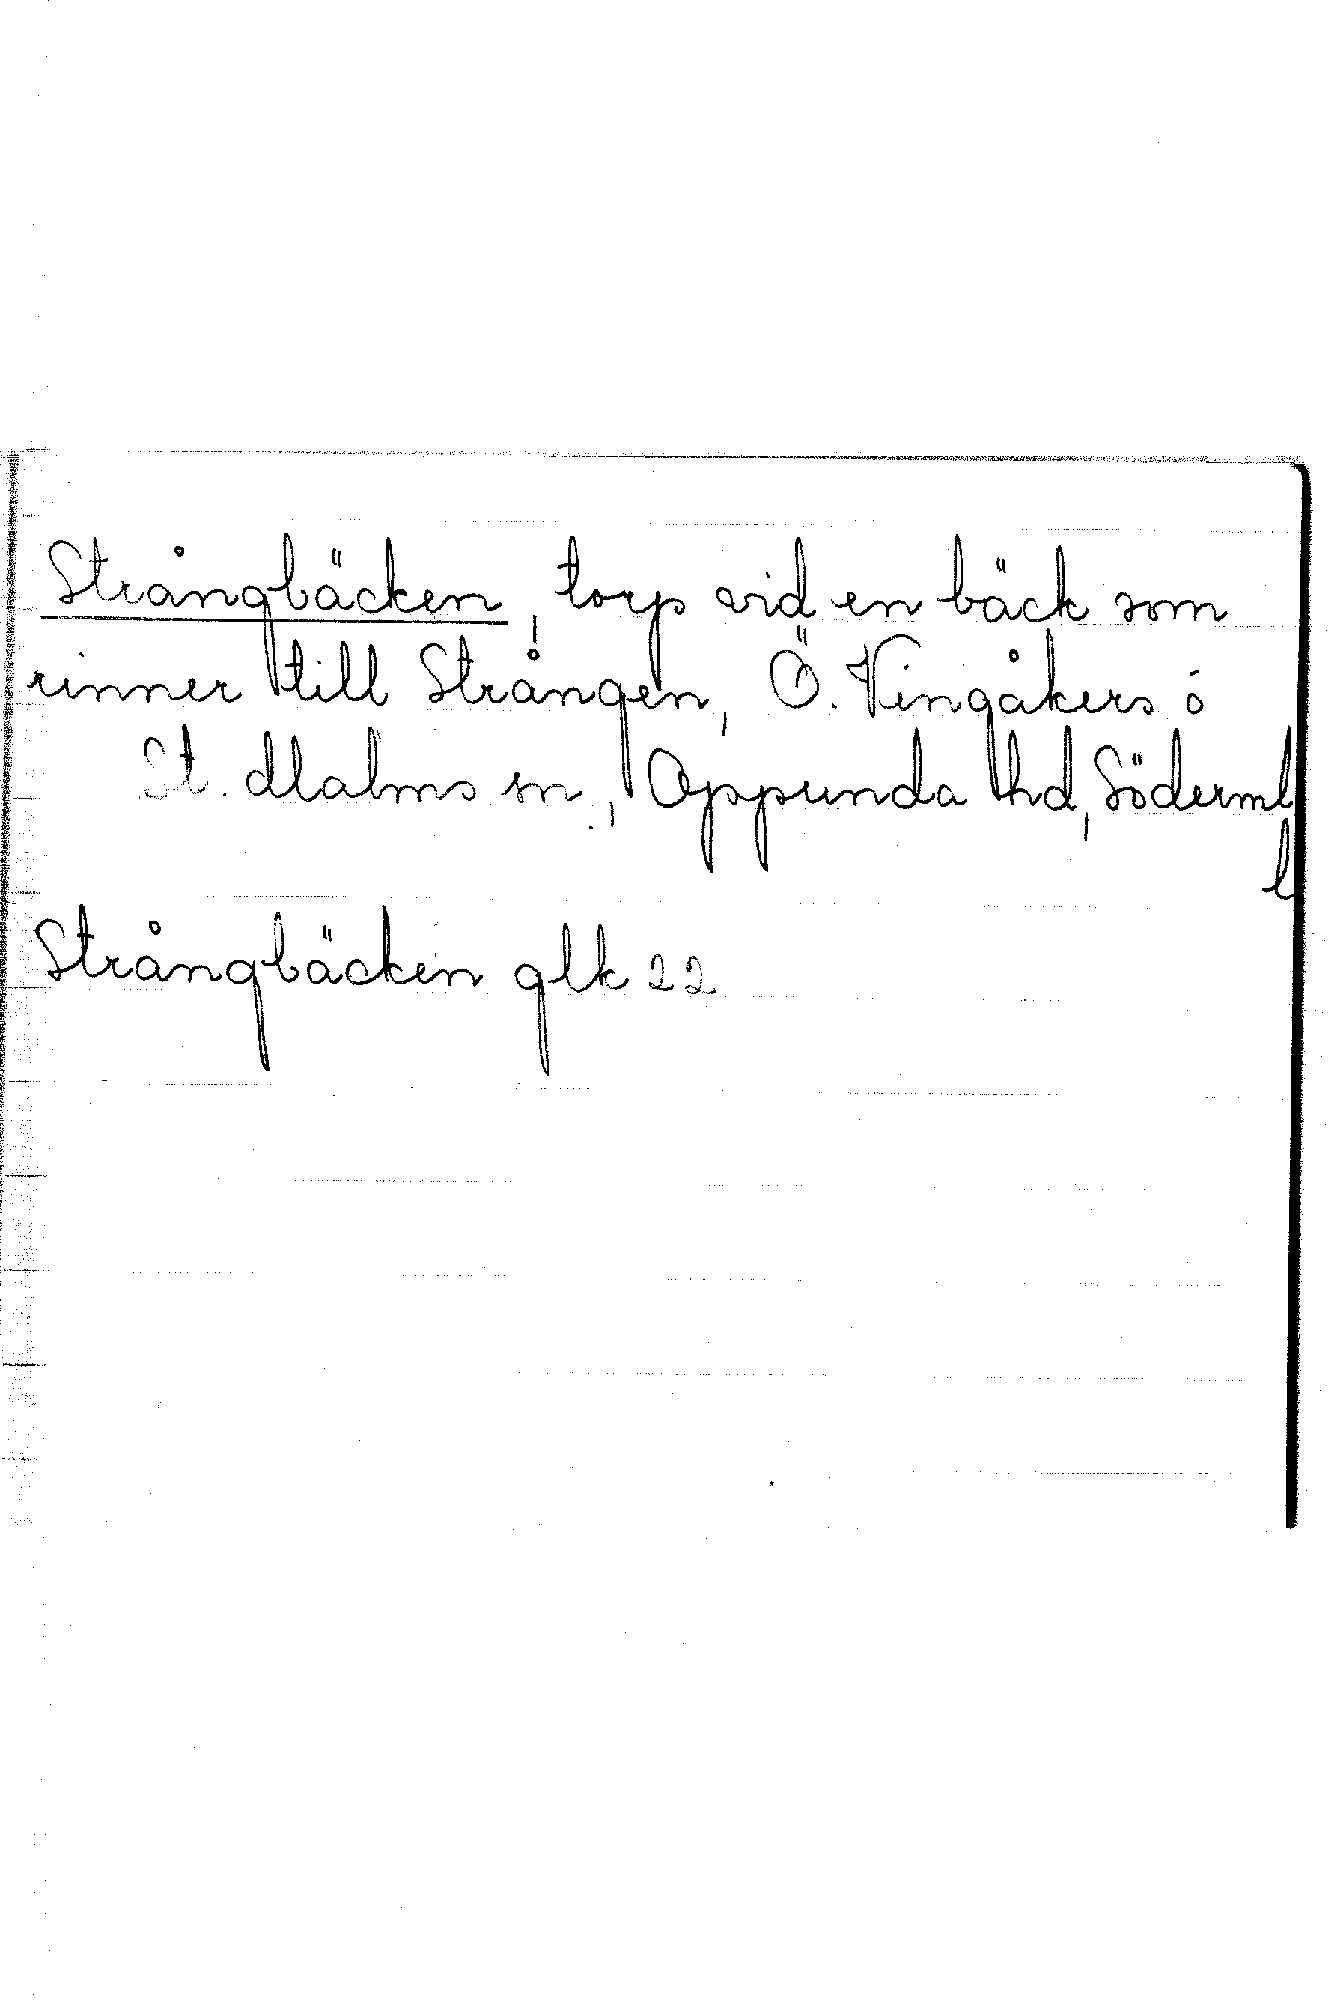 Strångbäcken, torp vid en bäck som
rinner till Strången, Ö. Vingåkers o
St. Malms sn, Oppunda hd, Söderml
l
Strångbäcken glk 22